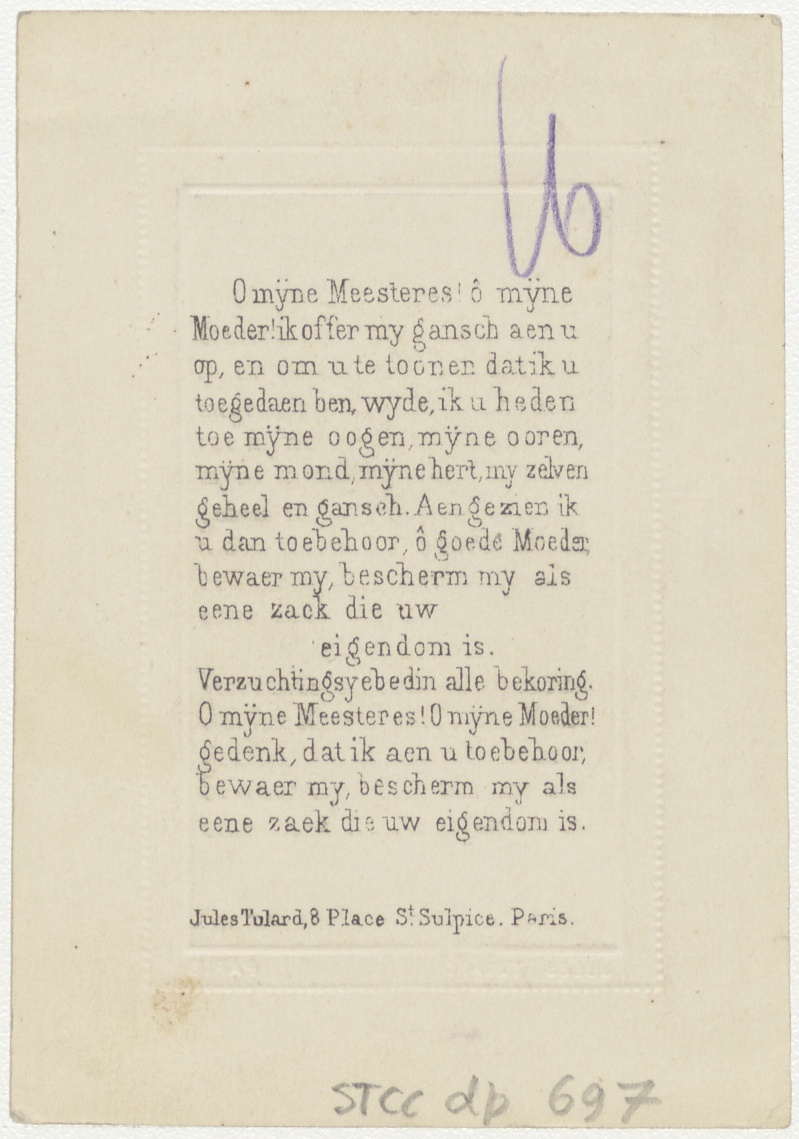 O mÿne Meesteres! ô mÿne
Moeder! ik offer my gansch aen u
op, en om u te toonen dat ik u
toegedaen ben, wyde, ik u heden
toe mÿne oogen, mÿne ooren,
mÿne mond, mÿne hert, my zelven
geheel en gansch. Aengezien ik
u dan toebehoor, ô goede Moeder,
bewaer my, bescherm my als
eene zack die uw
eigendom is.
Verzuchtingsyebed in alle bekoring.
O mÿne Meesteres! O mÿne Moeder!
gedenk, dat ik aen u toebehoor,
bewaer my, bescherm my als
eene zaek die uw eigendom is.
Jules Tulard, 8 Place St. Sulpice. Paris.
STCC dp 697